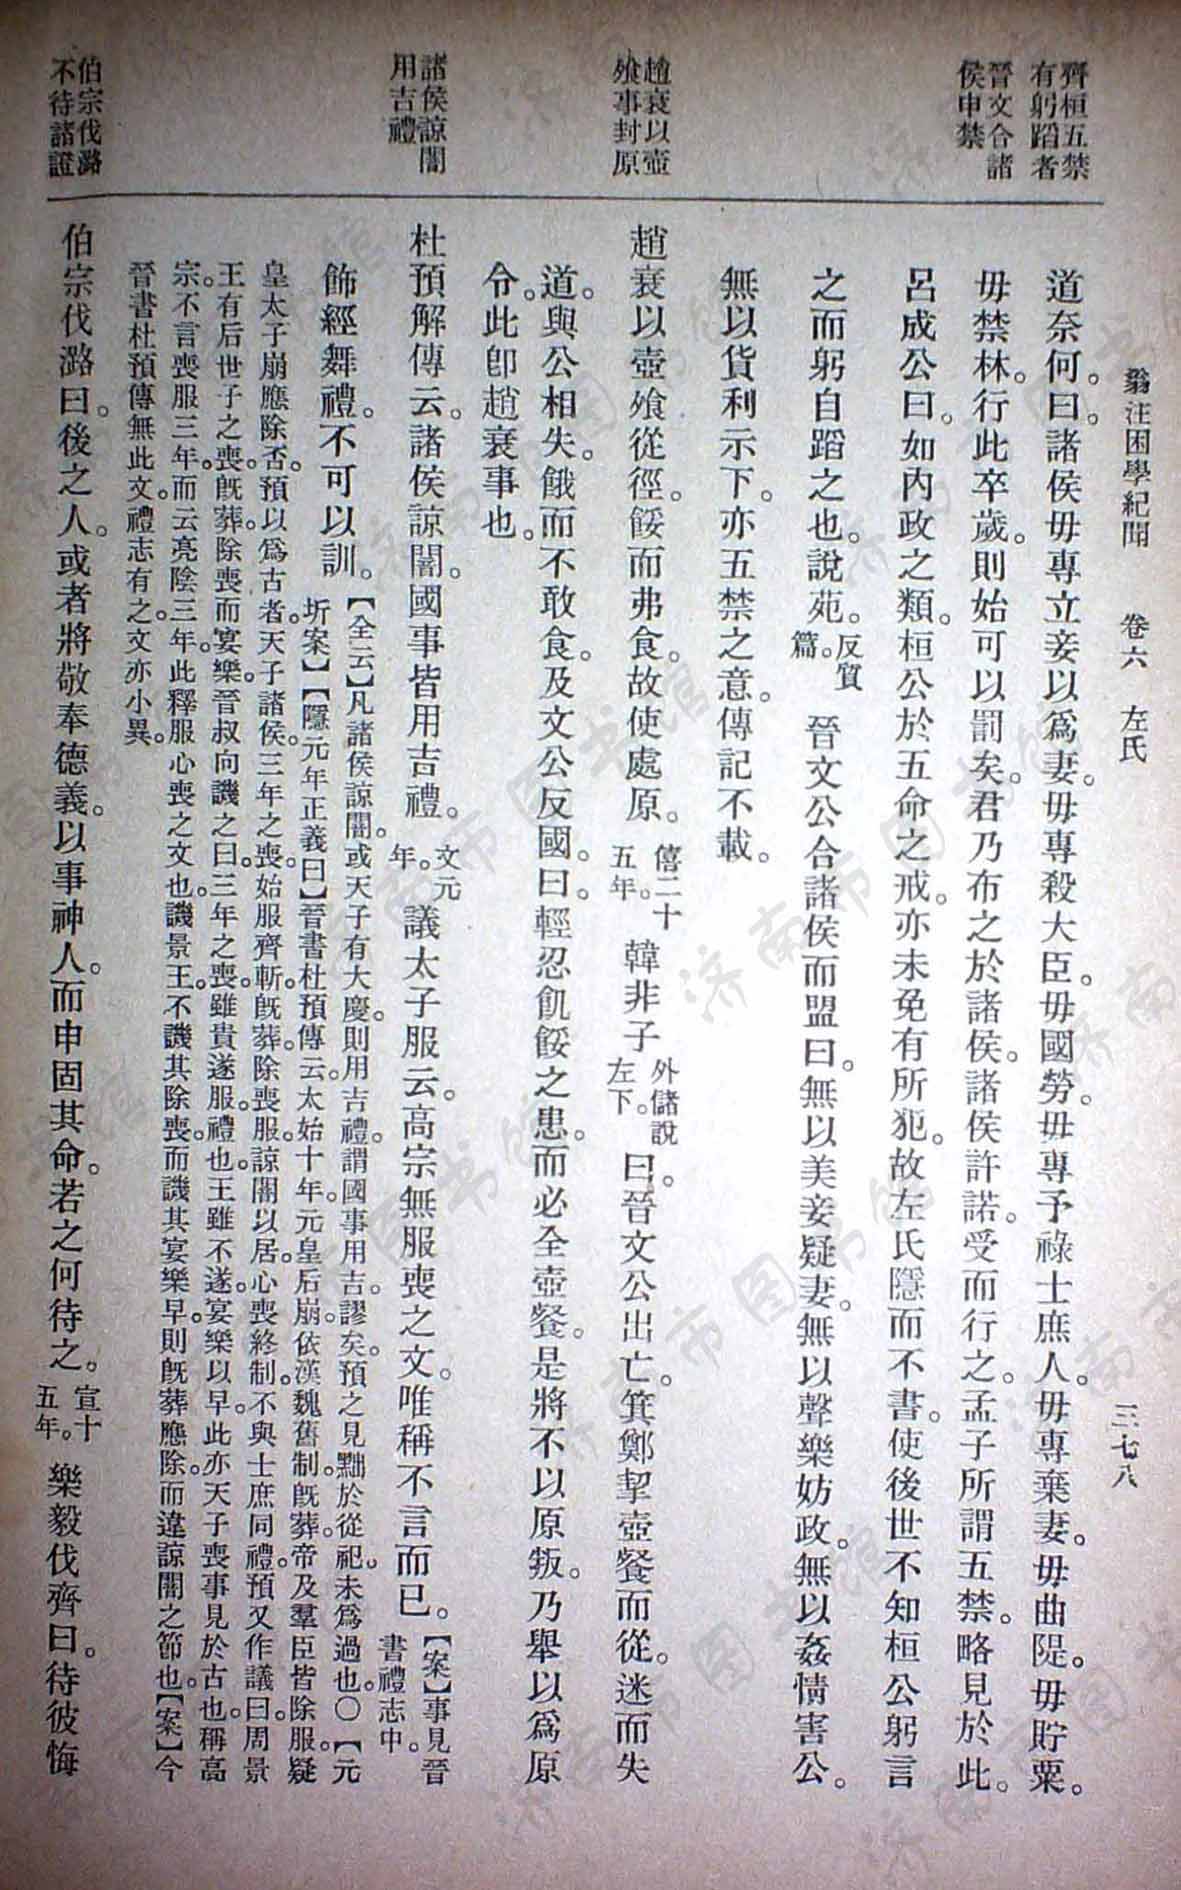 翁注困學紀聞　卷六　左氏　三七八
齊桓五禁
有躬蹈者
晉文合諸
侯申禁
趙衰以壺
飱事封原
諸侯諒闇
用吉禮
伯宗伐潞
不待諸證
道奈何。曰。諸侯毋專立妾以爲妻。毋專殺大臣。毋國勞。毋專予祿士庶人。毋專棄妻。毋曲隄。毋貯粟。
毋禁林。行此卒歲。則始可以罰矣。君乃布之於諸侯。諸侯許諾。受而行之。孟子所謂五禁。略見於此。
呂成公曰。如內政之類。桓公於五命之戒。亦未免有所犯。故左氏隱而不書。使後世不知桓公躬言
之而躬自蹈之也。說苑。反質篇。晉文公合諸侯而盟曰。無以美妾疑妻。無以聲樂妨政。無以姦情害公。
無以貨利示下。亦五禁之意。傳記不載。
趙衰以壺飱從徑。餒而弗食。故使處原。僖二十五年。韓非子外儲說左下。曰。晉文公出亡。箕鄭挈壺餐而從。迷而失
道。與公相失。餓而不敢食。及文公反國。曰。輕忍飢餒之患。而必全壺餐。是將不以原叛。乃舉以爲原
令。此卽趙衰事也。
杜預解傳云。諸侯諒闇。國事皆用吉禮。文元年。議太子服云。高宗無服喪之文。唯稱不言而已。【案】事見晉書禮志中。
飾經舞禮。不可以訓。【全云】凡諸侯諒闇。或天子有大慶。則用吉禮。謂國事用吉。謬矣。預之見黜於從祀。未爲過也。〇【元
圻案】【隱元年正義曰】晉書杜預傳云。太始十年。元皇后崩。依漢魏舊制。旣葬。帝及羣臣皆除服。疑
皇太子崩應除否。預以爲古者。天子諸侯。三年之喪。始服齊斬。旣葬。除喪服。諒闇以居。心喪終制。不與士庶同禮。預又作議曰。周景
王有后世子之喪。旣葬。除喪而宴樂。晉叔向譏之曰。三年之喪。雖貴遂服。禮也。王雖不遂。宴樂以早。此亦天子喪事見於古也。稱高
宗。不言喪服三年。而云亮陰三年。此釋服心喪之文也。譏景王。不譏其除喪。而譏其宴樂早。則旣葬應除。而違諒闇之節也。【案】今
晉書杜預傳無此文。禮志有之。文亦小異。
伯宗伐潞曰。後之人。或者將敬奉德義。以事神人。而申固其命。若之何待之。宣十五年。樂毅伐齊曰。待彼悔